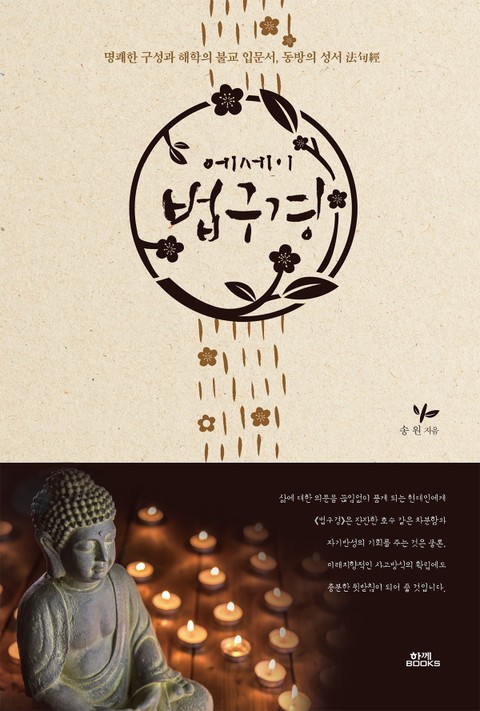 명쾌한 구성과 해학의 불교 입문서, 동방의 성서 法句經
에세이
법구경
송 원 지음
삶에 대한 의문을 끊임없이 품게 되는 현대인에게
《법구경》은 잔잔한 호수 같은 차분함과
자기반성의 기회를 주는 것은 물론,
미래지향적인 사고방식의 확립에도
충분한 뒷받침이 되어 줄 것입니다.
함께
BOOKS